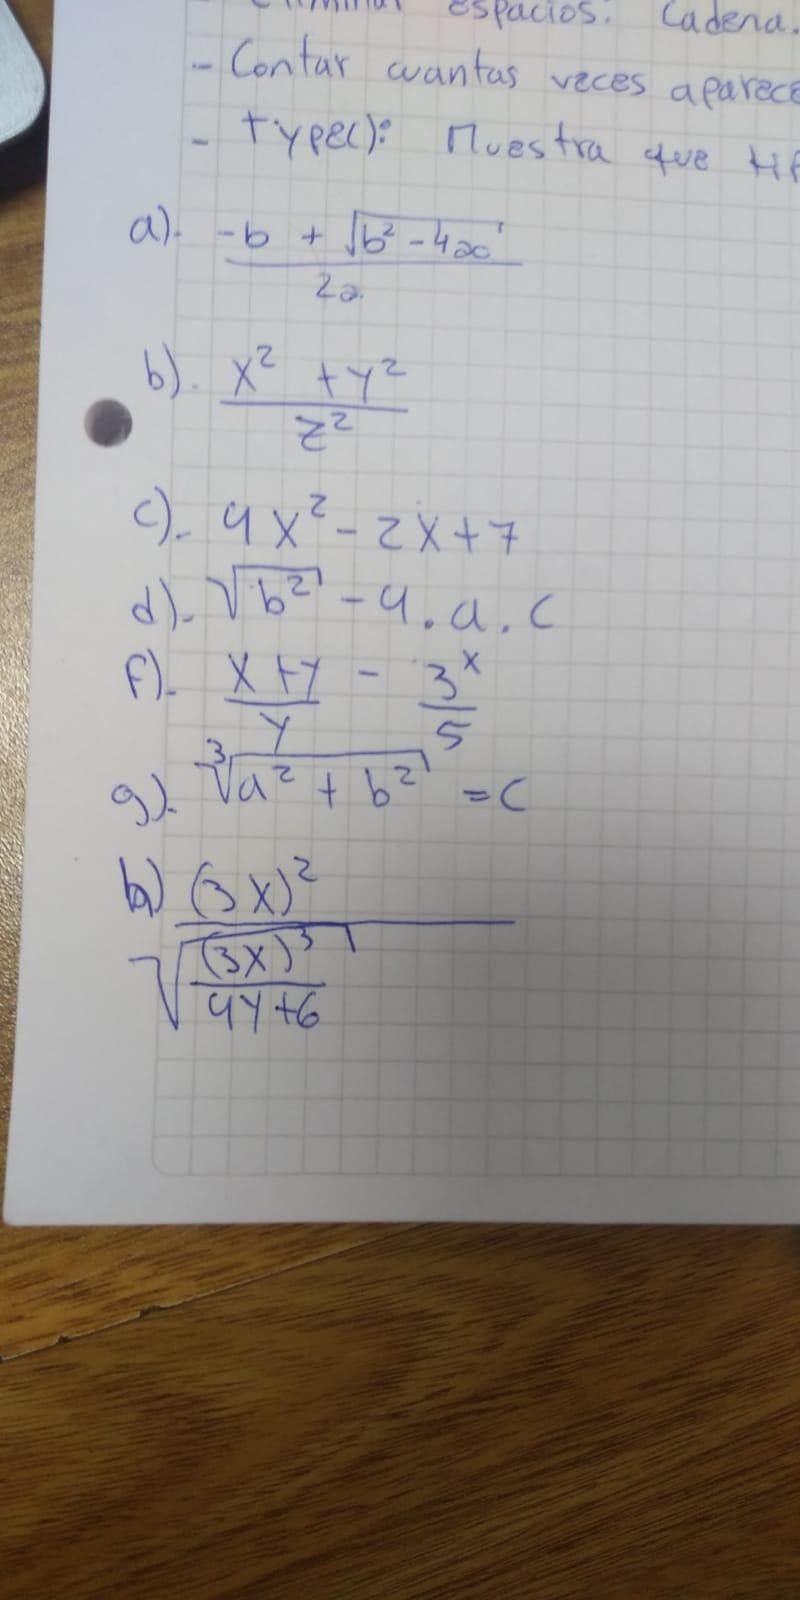 espacios: Cadena.
- Contar cuantas veces aparece
- type(): Muestra que
a).- -b + √b² - 4ac
2a
b).- x² + y²
z²
c).- 4x² - 2x + 7
d).- √b² - 4.a.c
f).- x + y - 3ˣ
y 5
g).- ³√a² + b² = c
h) (3x)²
√(3x)³
4y+6